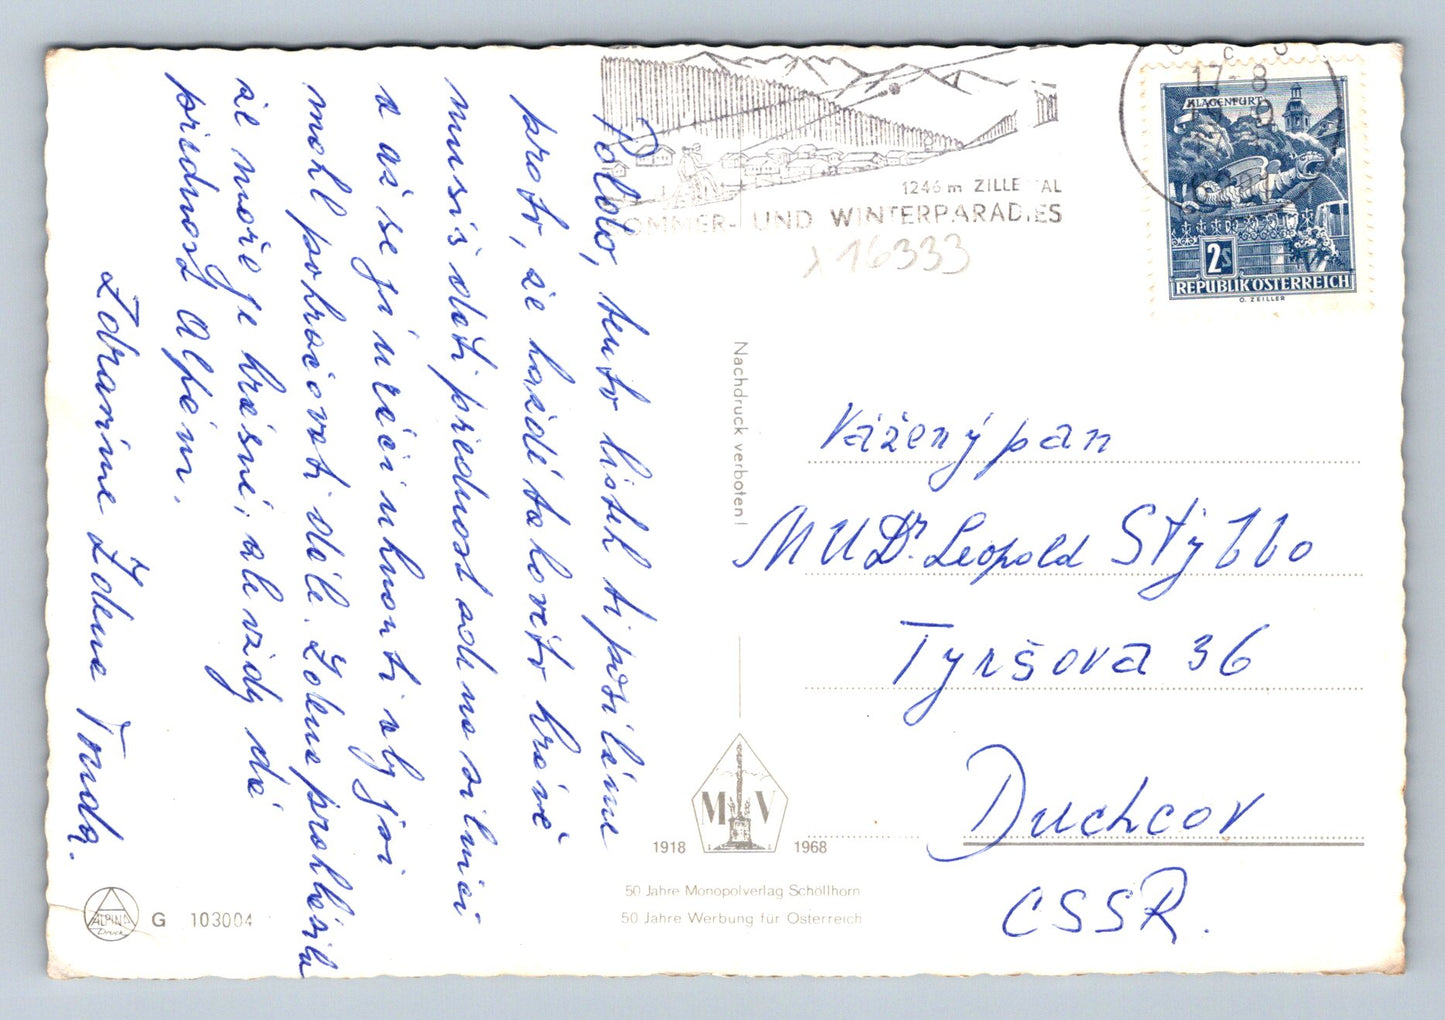 Poldo, tento lístek ti posíláme
proto, že každé takovéto krávě
musíš dáti přednost ach na silnici
a až se jí uráčí uhnouti aby jsi
mohl pokračovati dále. Zdena prohlásila
že moře je krásné, ale vždy dá
přednost Alpám.
Zdravíme Zdena Tonda.
1246 m ZILLERTAL
SOMMER- UND WINTERPARADIES
x16333
17-8
KLAGENFURT
2S
REPUBLIK ÖSTERREICH
O. ZEILLER
Nachdruck verboten!
Vážený pan
MUDr. Leopold Stýblo
Tyršova 36
Duchcov
ČSSR.
M V
1918 1968
50 Jahre Monopolverlag Schöllhorn
50 Jahre Werbung für Österreich
ALPINA
Druck
G 103004